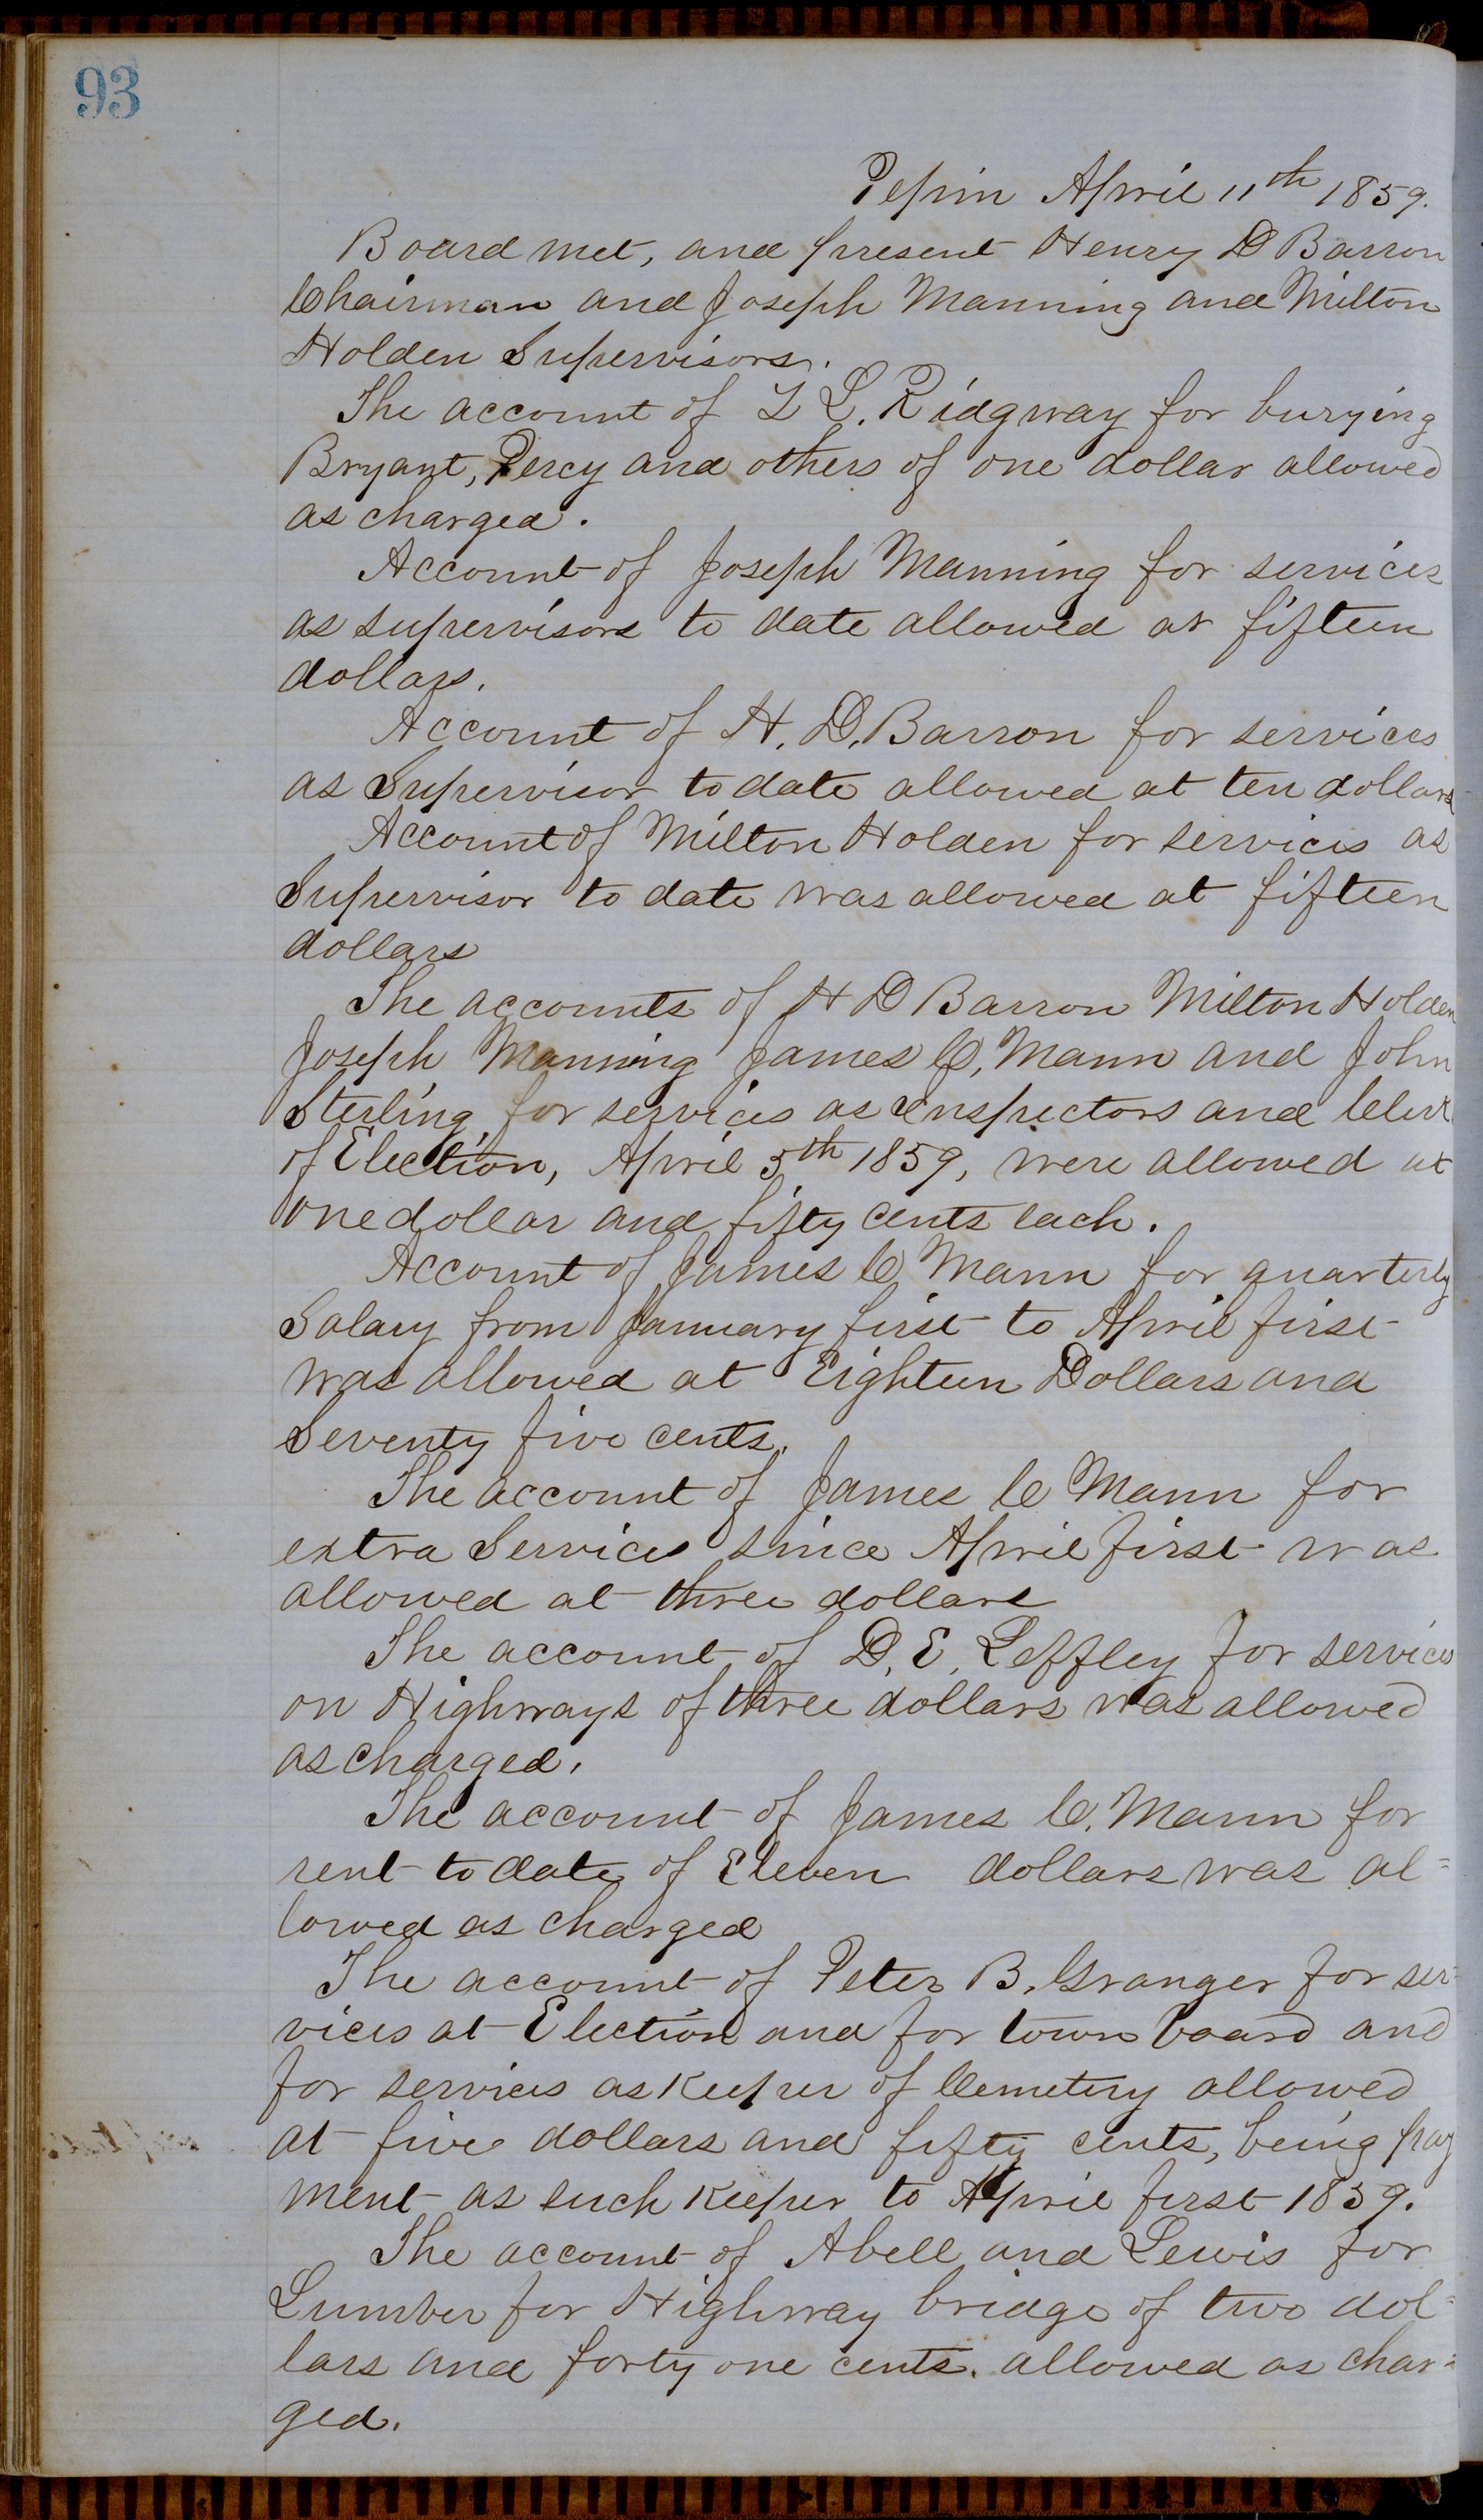 93
Pepin April 11th 1859.
Board met, and present Henry D Barron
Chairman and Joseph Manning and Milton
Holden Supervisors.
The account of L L. Ridgway for burying
Bryant, Percy and others of one dollar allowed
as charged.
Account of Joseph Manning for services
as supervisors to date allowed at fifteen
dollars.
Account of H. D. Barron for services
as Supervisor to date allowed at ten dollars
Account of Milton Holden for services as
Supervisor to date was allowed at fifteen
dollars
The accounts of H D Barron Milton Holden
Joseph Manning James C. Mann and John
Sterling for services as Inspectors and Clerk
of Election, April 5th 1859, were allowed at
one dollar and fifty cents each.
Account of James C Mann for quarterly
Salary from January first to April first
was allowed at Eighteen Dollars and
Seventy five cents.
The account of James C Mann for
extra Services since April first was
allowed at three dollars
The account of D. E. Leffley for services
on Highways of three dollars was allowed
as charged.
The account of James C. Mann for
rent to date of Eleven dollars was al=
lowed as charged
The account of Peter B. Granger for ser=
vices at Election and for town board and
for services as Keeper of Cemetery allowed
at five dollars and fifty cents, being pay
ment as such Keeper to April first 1859.
The account of Abell and Lewis for
Lumber for Highway bridge of two dol=
lars and forty one cents. allowed as char=
ged.